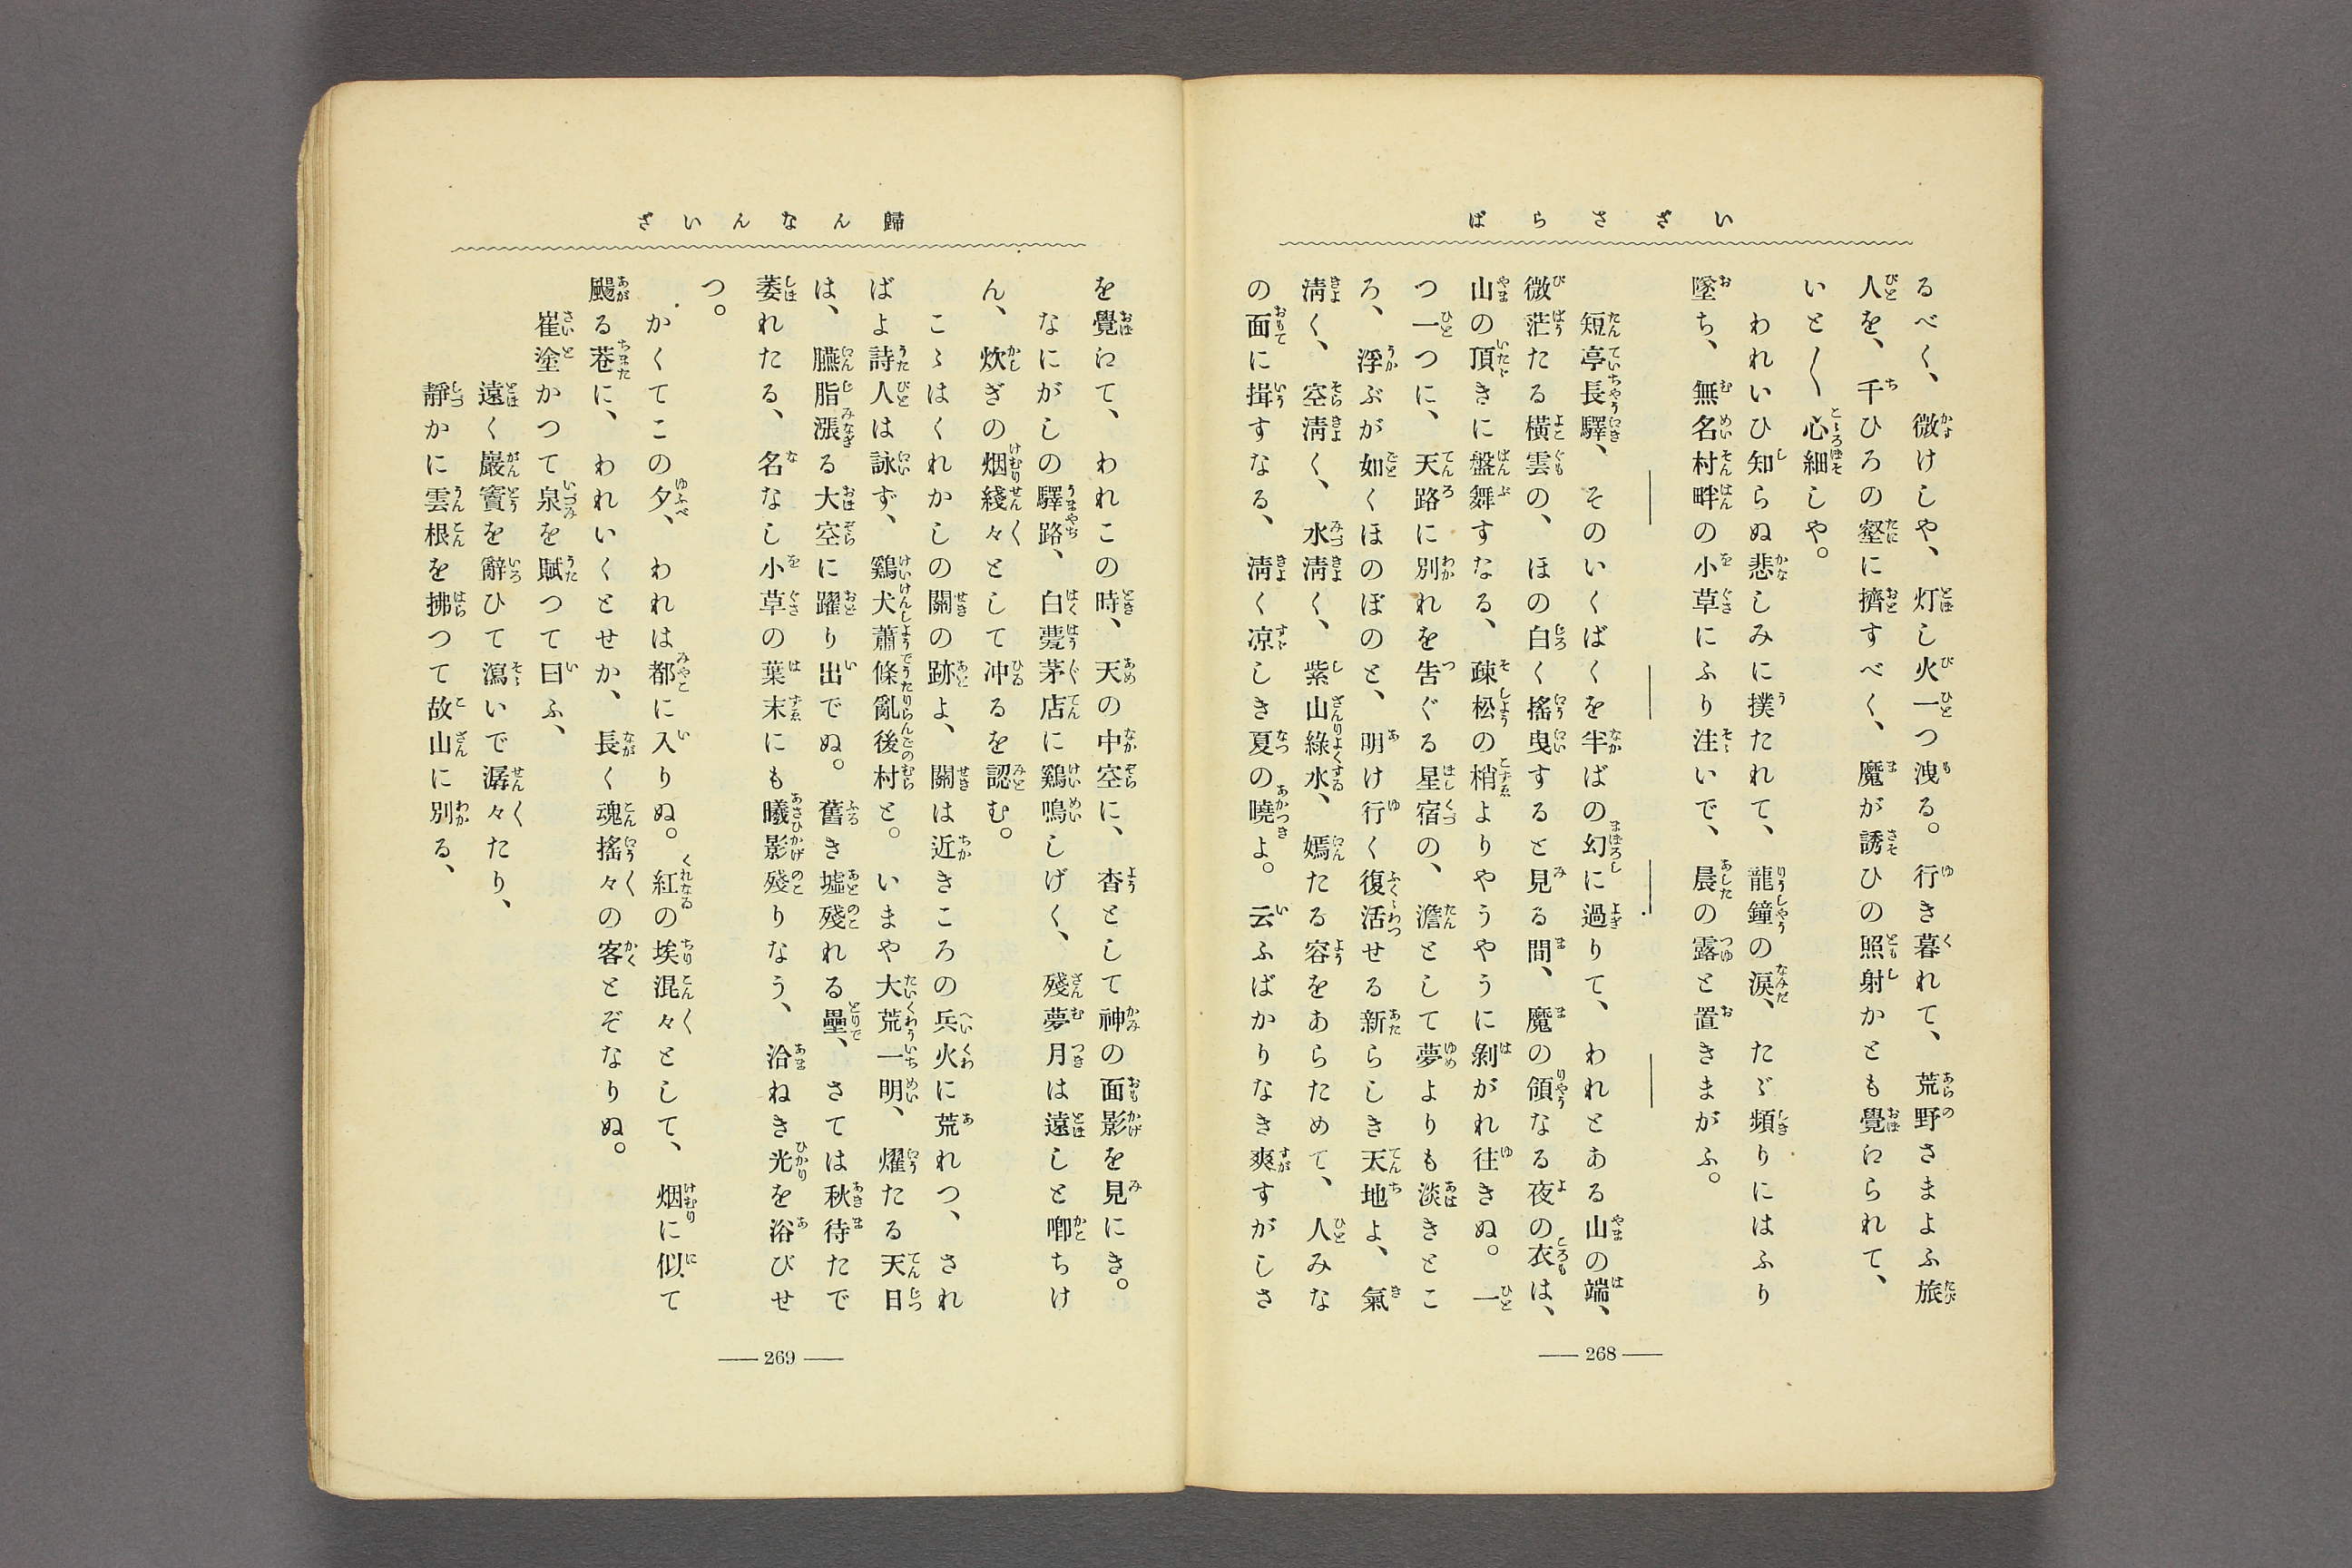 いざさらば
るべく、微けしや、灯し火一つ洩る。行き暮れて、荒野さまよふ旅
人を、千ひろの壑に擠すべく、魔が誘ひの照射かとも覺にられて、
いと〱心細しや。
われいひ知らぬ悲しみに撲たれて、龍鐘の涙、たゞ頻りにはふり
墜ち、無名村畔の小草にふり注いで、晨の露と置きまがふ。
短亭長驛、そのいくばくを半ばの幻に過りて、われとある山の端、
微茫たる横雲の、ほの白く搖曳すると見る間、魔の領なる夜の衣は、
山の頂きに盤舞すなる、疎松の梢よりやうやうに剝がれ往きぬ。一
つ一つに、天路に別れを吿ぐる星宿の、澹として夢よりも淡きとこ
ろ、浮ぶが如くほのぼのと、明け行く復活せる新らしき天地よ、氣
淸く、空淸く、水淸く、紫山綠水、嫣たる容をあらためて、人みな
の面に揖すなる、淸く凉しき夏の曉よ。云ふばかりなき爽すがしさ
268
歸んなんいざ
を覺にて、われこの時、天の中空に、杳として神の面影を見にき。
なにがしの驛路、白甍茅店に鷄鳴しげく、殘夢月は遠しと啣ちけ
ん、炊ぎの烟綫々として冲るを認む。
こゝはくれかしの關の跡よ、關は近きころの兵火に荒れつ、され
ばよ詩人は詠ず、鷄犬蕭條亂後村と。いまや大荒一明、燿たる天日
は、臙脂漲る大空に躍り出でぬ。舊き墟殘れる壘、さては秋待たで
萎れたる、名なし小草の葉末にも曦影殘りなう、洽ねき光を浴びせ
つ。
かくてこの夕、われは都に入りぬ。紅の埃混々として、烟に似て
颺る巷に、われいくとせか、長く魂搖々の客とぞなりぬ。
崔塗かつて泉を賦つて曰ふ、
遠く巖竇を辭ひて瀉いで潺々たり、
靜かに雲根を拂つて故山に別る、
269